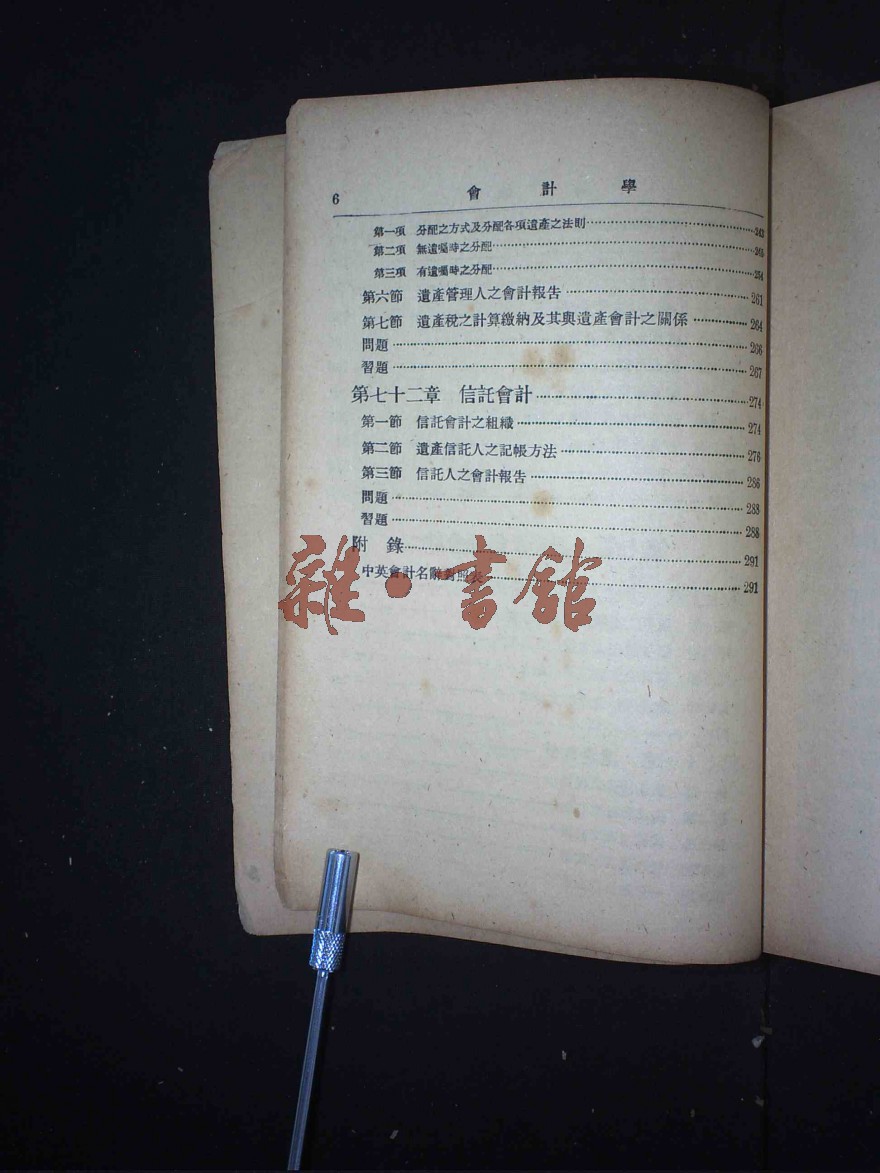 6 會計學
第一項 分配之方式及分配各項遺產之法則 243
第二項 無遺囑時之分配
第三項 有遺囑時之分配 254
第六節 遺產管理人之會計報告 261
第七節 遺產稅之計算繳納及其與遺產會計之關係 264
問題 266
習題 267
第七十二章 信託會計 274
第一節 信託會計之組織 274
第二節 遺產信託人之記帳方法 276
第三節 信託人之會計報告 286
問題 288
習題 288
附錄 291
中英會計名辭對照表 291
雜·書館